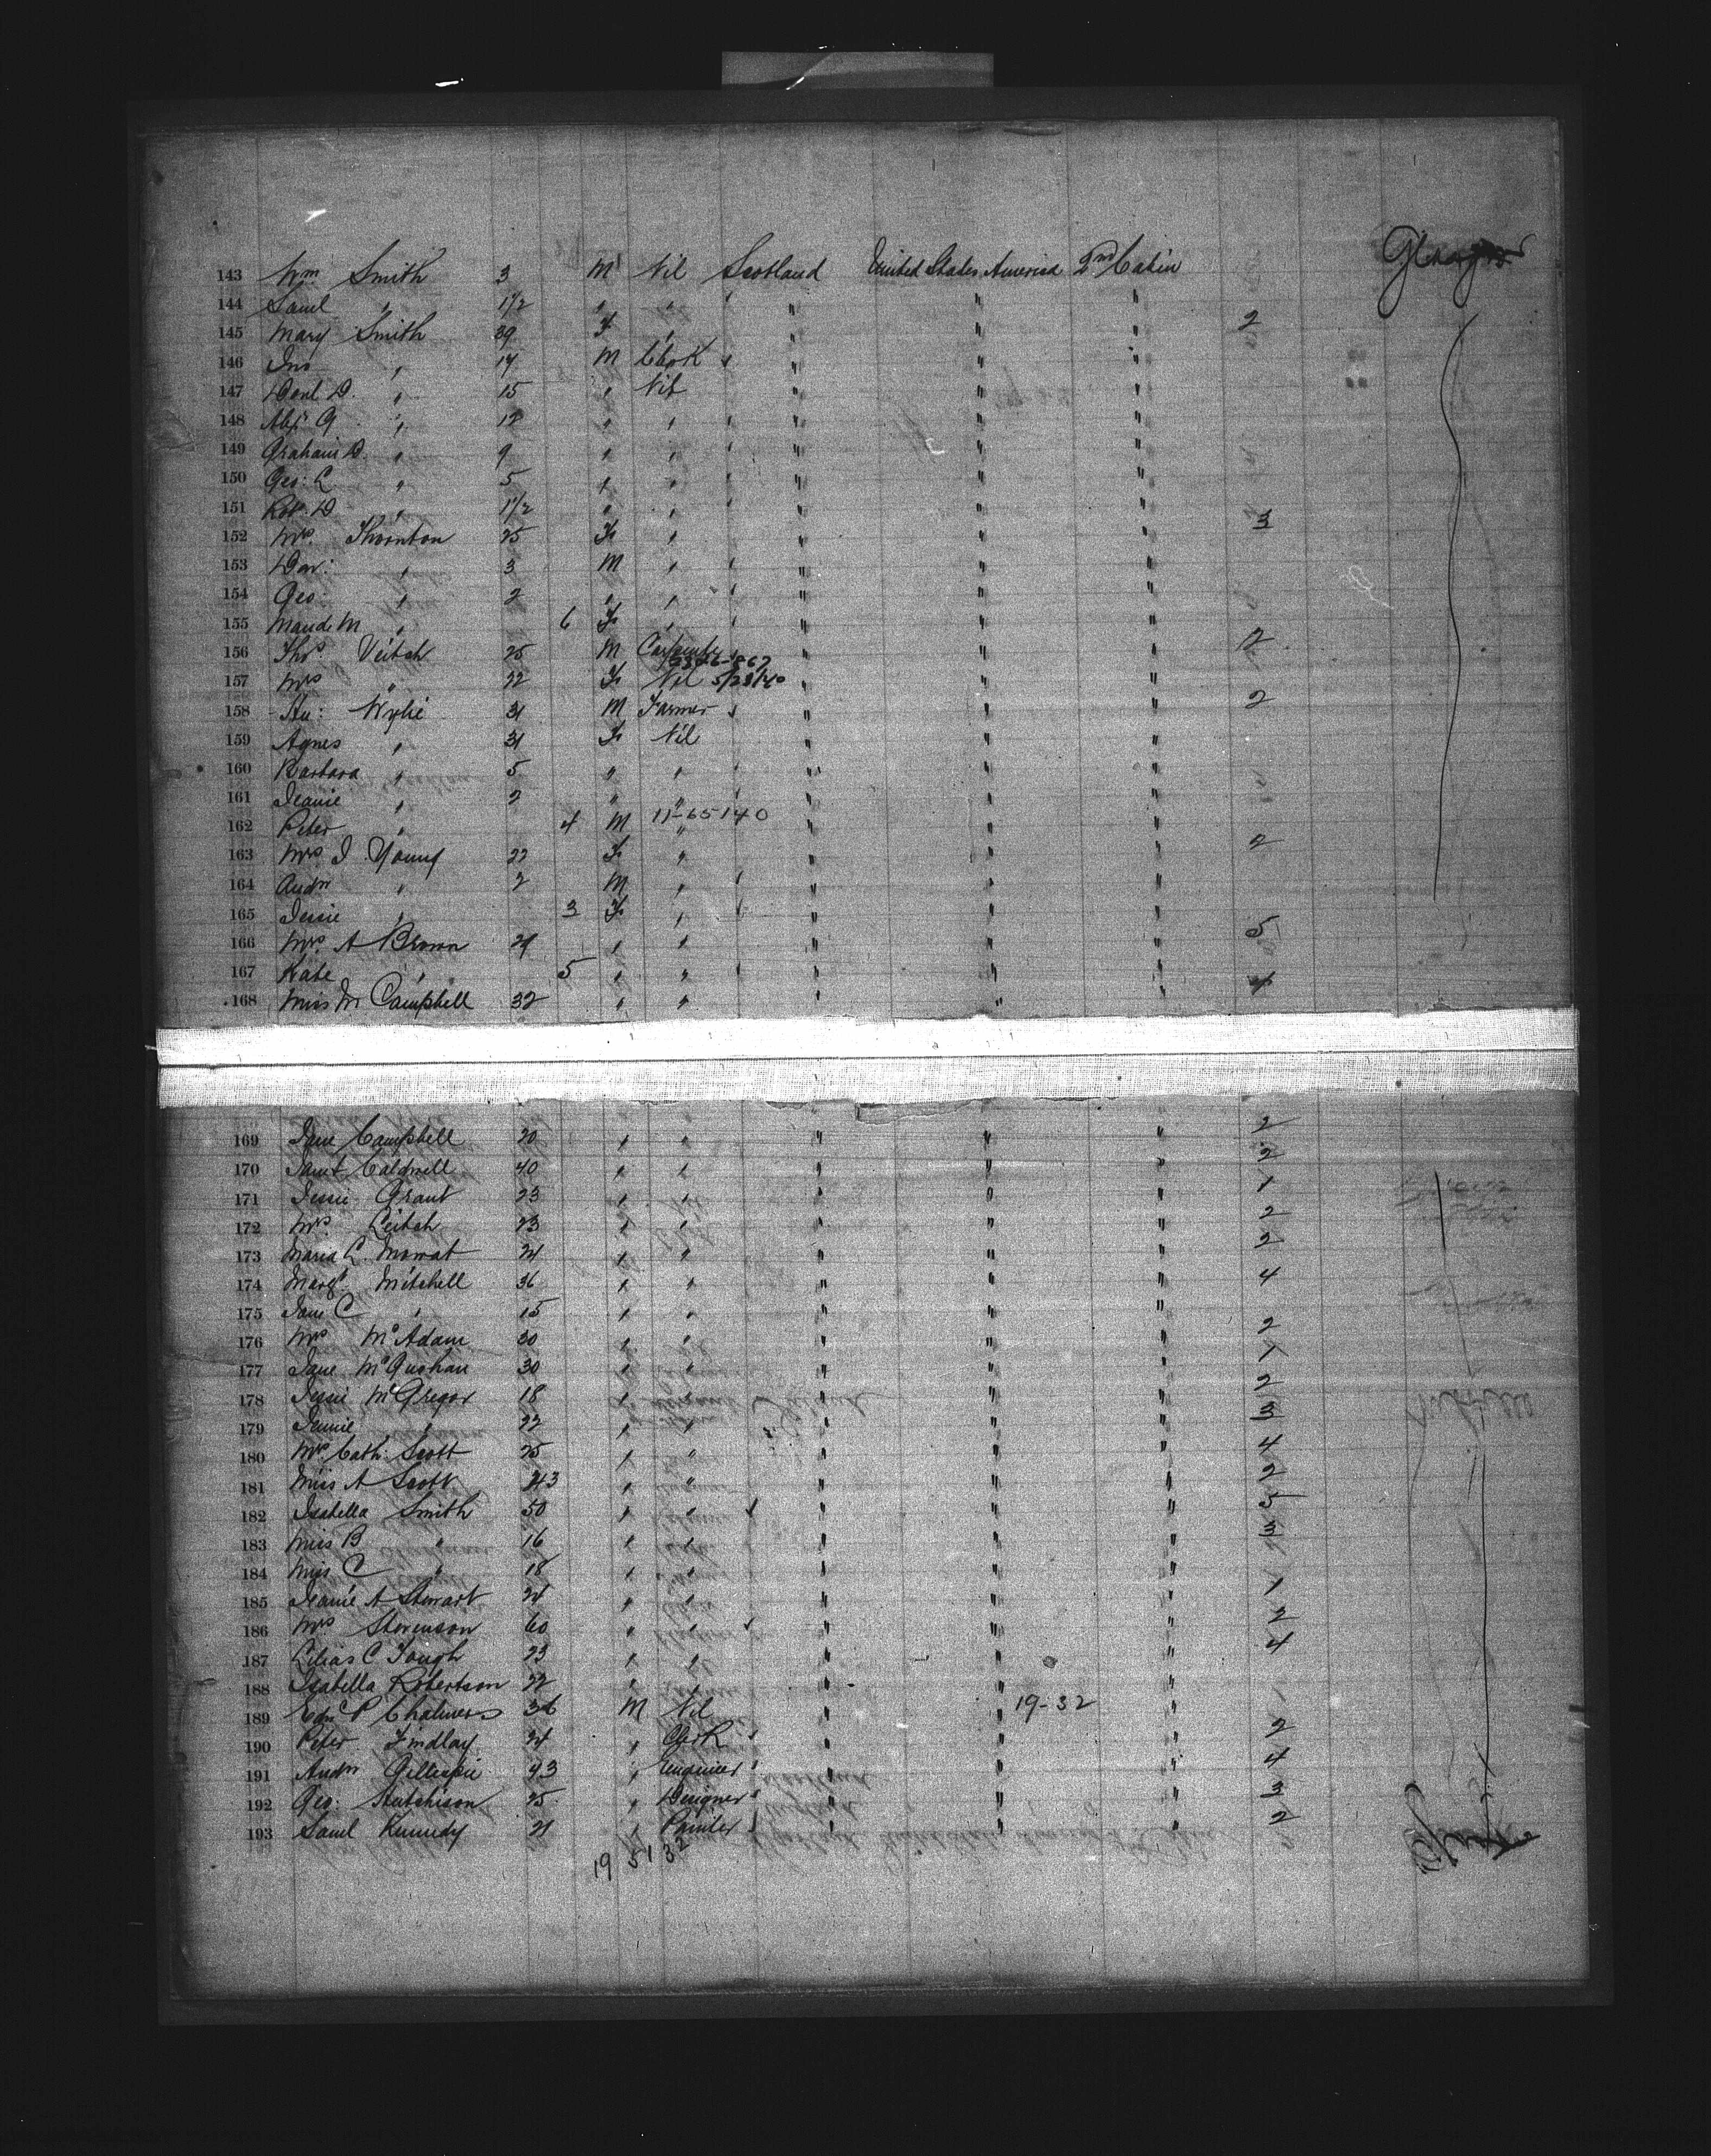 143 Wm Smith 3 M Nil Scotland United States America 2nd Cabin Glasgow
144 Saml " 1 1/2 " " " " "
145 Mary Smith 39 F " " " " 2
146 Jno " 17 M Clerk " " "
147 Donl D. " 15 " Nil " " "
148 Alexr G " 12 " " " " "
149 Graham D. " 9 " " " " "
150 Geo: L " 5 " " " " "
151 Robt D " 1 1/2 " " " " "
152 Mrs. Thornton 25 F " " " " 3
153 Dav: " 3 M " " " "
154 Geo: " 2 " " " " "
155 Maude M " 6 F " " " "
156 Thos Veitch 25 M Carpenter " " " 2
157 Mrs " 22 F Nil 5/23/40 " " "
158 Hu: Wylie 31 M Farmer " " " 2
159 Agnes " 31 F Nil " " "
160 Barbara " 5 " " " " "
161 Jeanie " 2 " " " " "
162 Peter " 4 M 11-65140 " " " "
163 Mrs J. Young 22 F " " " " 2
164 Andw " 2 M " " " "
165 Jessie " 3 F " " " "
166 Mrs. A Brown 29 " " " " " 5
167 Kate " 5 " " " " "
168 Miss M Campbell 32 " " " " 4
169 Jane Campbell 20 " " " " " 2
170 Janet Caldwell 40 " " " " " 2
171 Jessie Grant 23 " " " " " 1
172 Mrs Leitch 23 " " " " " 2
173 Maria L. Mowat 24 " " " " " 2
174 Margt Mitchell 36 " " " " " 4
175 Jane C " 15 " " " " "
176 Mrs McAdam 30 " " " " " 2
177 Jane 30 " " " " " 1
178 Jessie McGregor 18 " " " " " 2
179 Jennie " 22 " " " " " 3
180 Mrs. Cath: Scott 25 " " " " " 4
181 Miss A Scott 23 " " " " " 2
182 Isabella Smith 50 " " " " " 5
183 Miss B " 16 " " " " " 3
184 Miss C " 18 " " " " "
185 Jeanie A Stewart 24 " " " " " 1
186 Mrs Stevenson 60 " " " " " 2
187 Lilias C Tough 23 " " " " " 4
188 Isabella Robertson 22 " " " " "
189 Edw P Chalmers 36 M Nil " " 19-32 "
190 Peter Findlay 24 " Clerk " " " 2
191 Andw Gillespie 43 " Engineer " " " 4
192 Geo: Hutchison 25 " Designer " " " 3
193 Saml Kennedy 21 " Painter " " " 2
19 5132